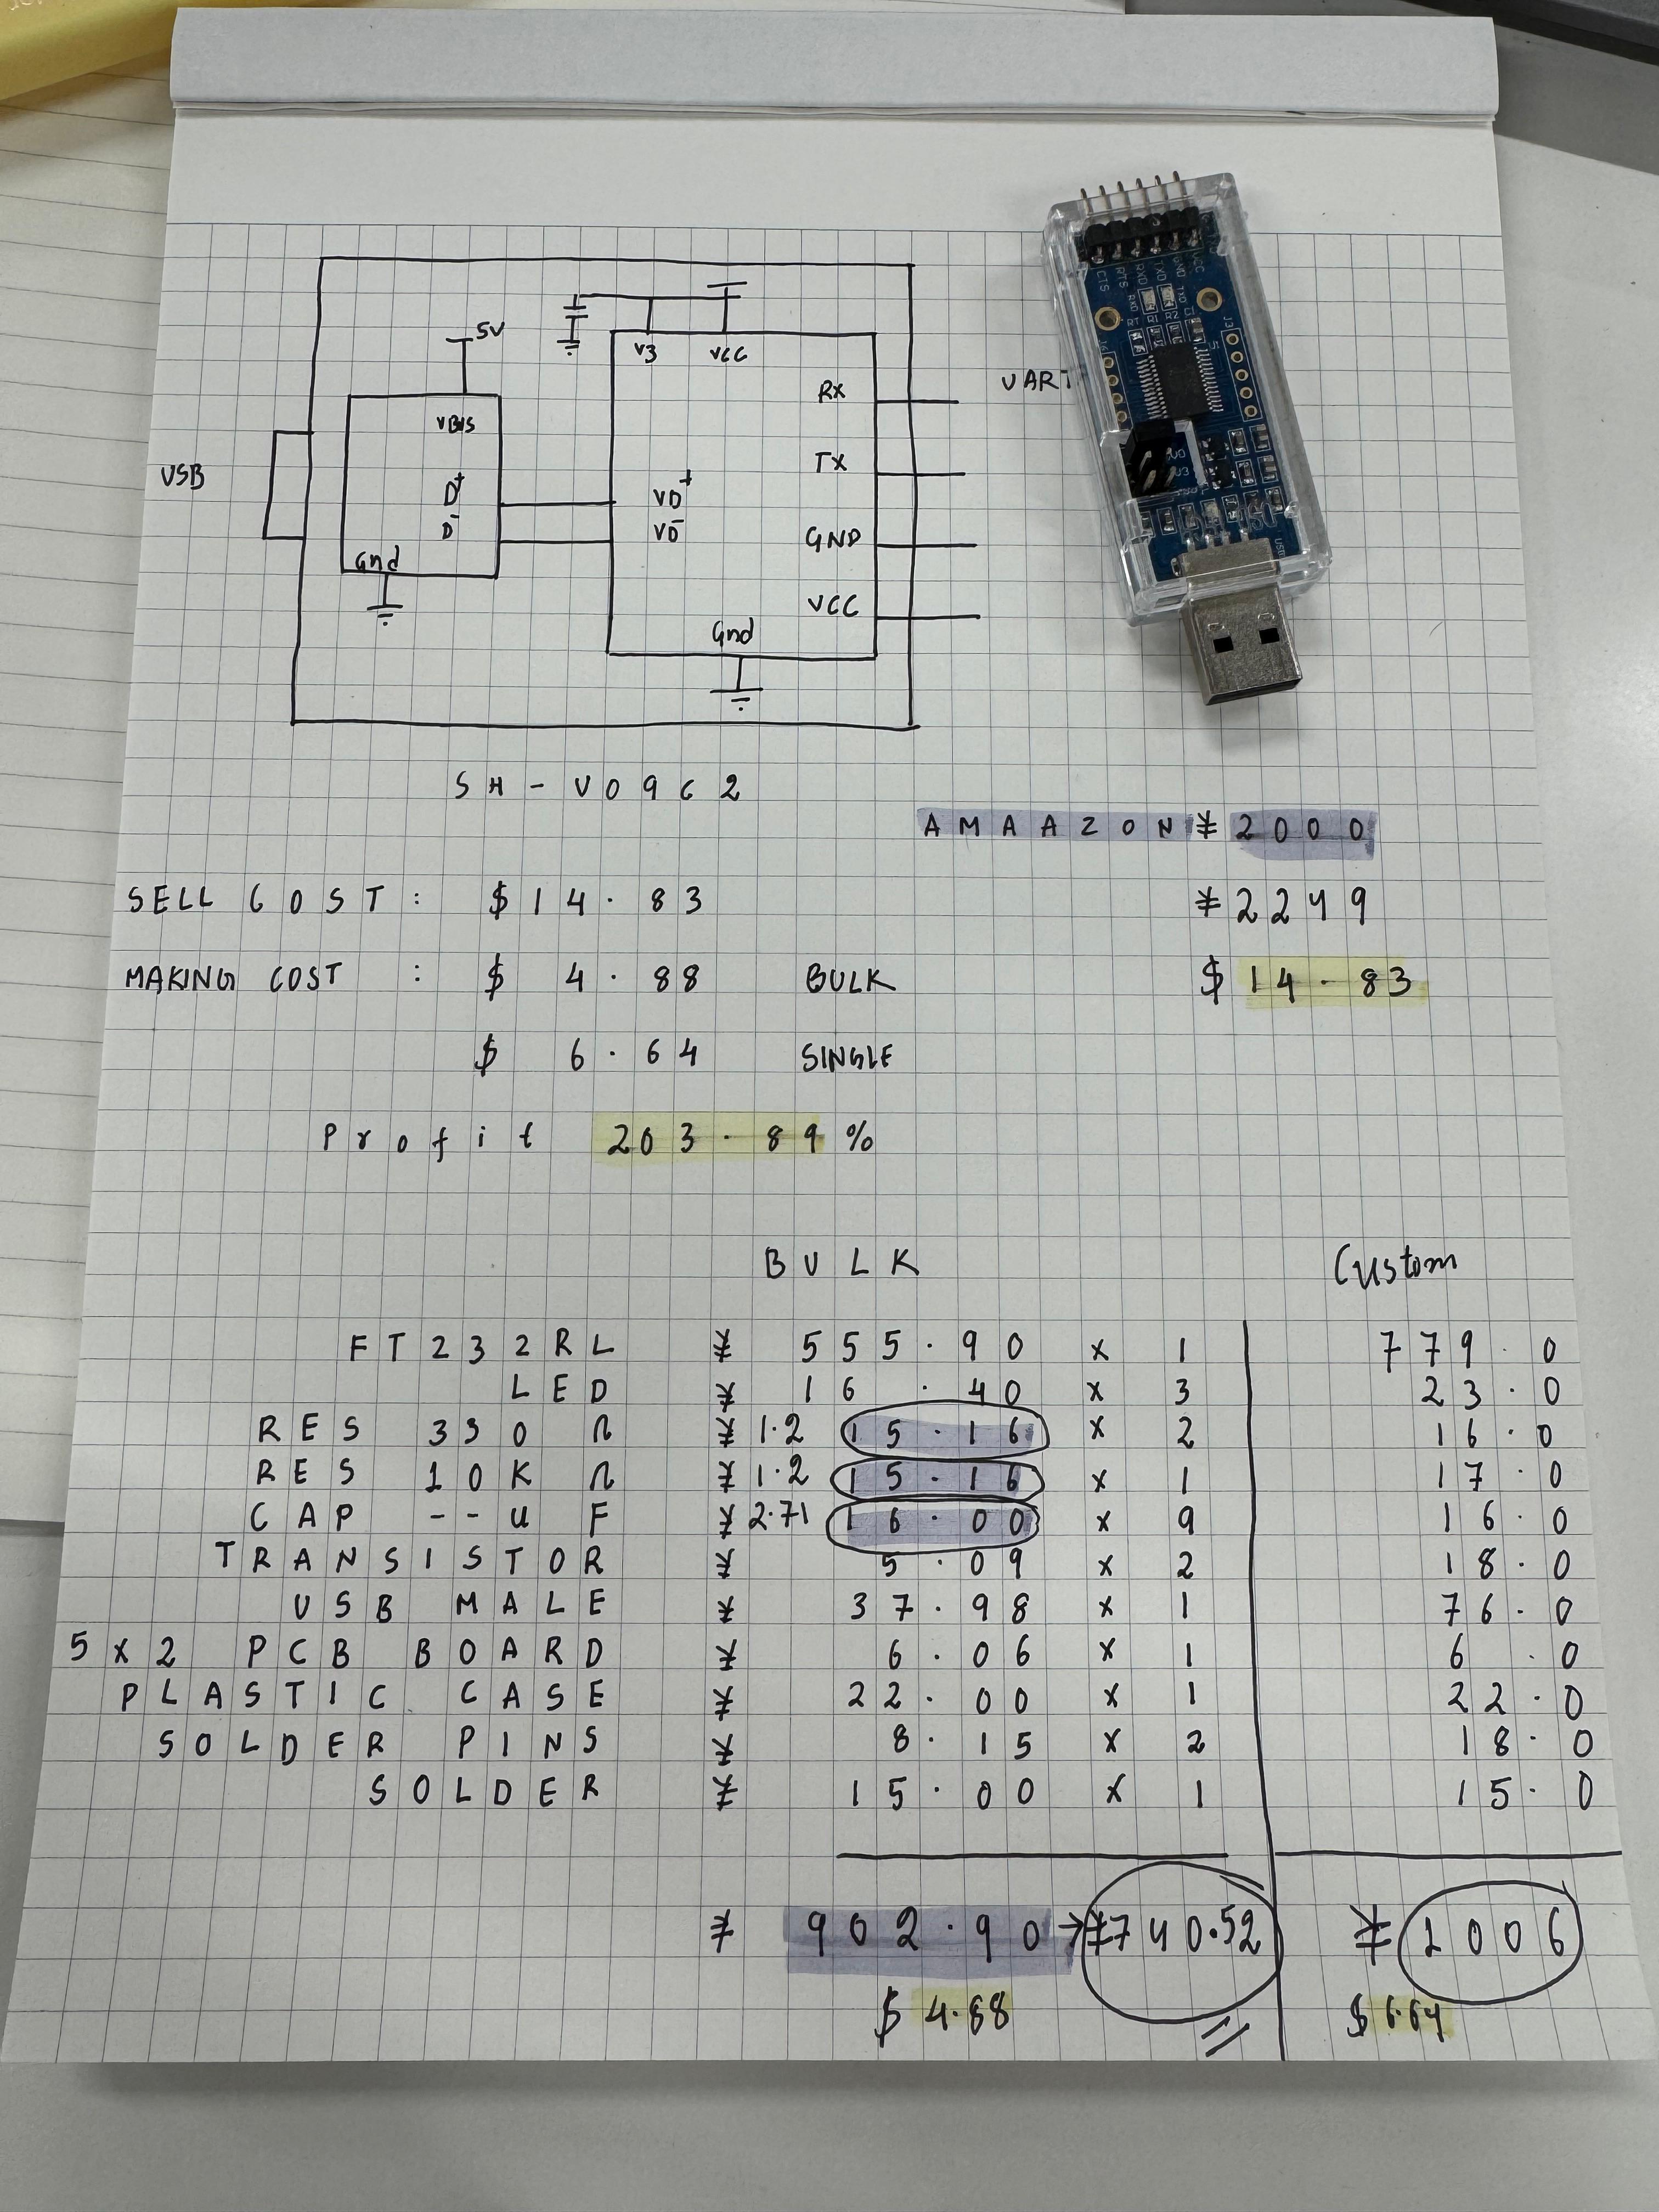 5V
V3 VCC
VBUS
RX
UART
USB
TX
D+
D-
VD+
VD-
GND
Gnd
VCC
Gnd
CTS RTS RXD TXD GND VCC
RXD TXD
RT R1 R2 C1
J3
SH-U09C2
AMAAZON ¥2000
SELL COST: $14.83 ¥2249
MAKING COST : $ 4.88 BULK $14.83
$ 6.64 SINGLE
Profit 203.89%
BULK Custom
FT232RL ¥ 555.90 x 1 779.0
LED ¥ 16.40 x 3 23.0
RES 330 Ω ¥ 1.2 15.16 x 2 16.0
RES 10K Ω ¥ 1.2 15.16 x 1 17.0
CAP --u F ¥ 2.71 16.00 x 9 16.0
TRANSISTOR ¥ 5.09 x 2 18.0
USB MALE ¥ 37.98 x 1 76.0
5x2 PCB BOARD ¥ 6.06 x 1 6.0
PLASTIC CASE ¥ 22.00 x 1 22.0
SOLDER PINS ¥ 8.15 x 2 18.0
SOLDER ¥ 15.00 x 1 15.0
¥ 902.90 → ¥740.52 ¥ 1006
$ 4.88 $ 6.64